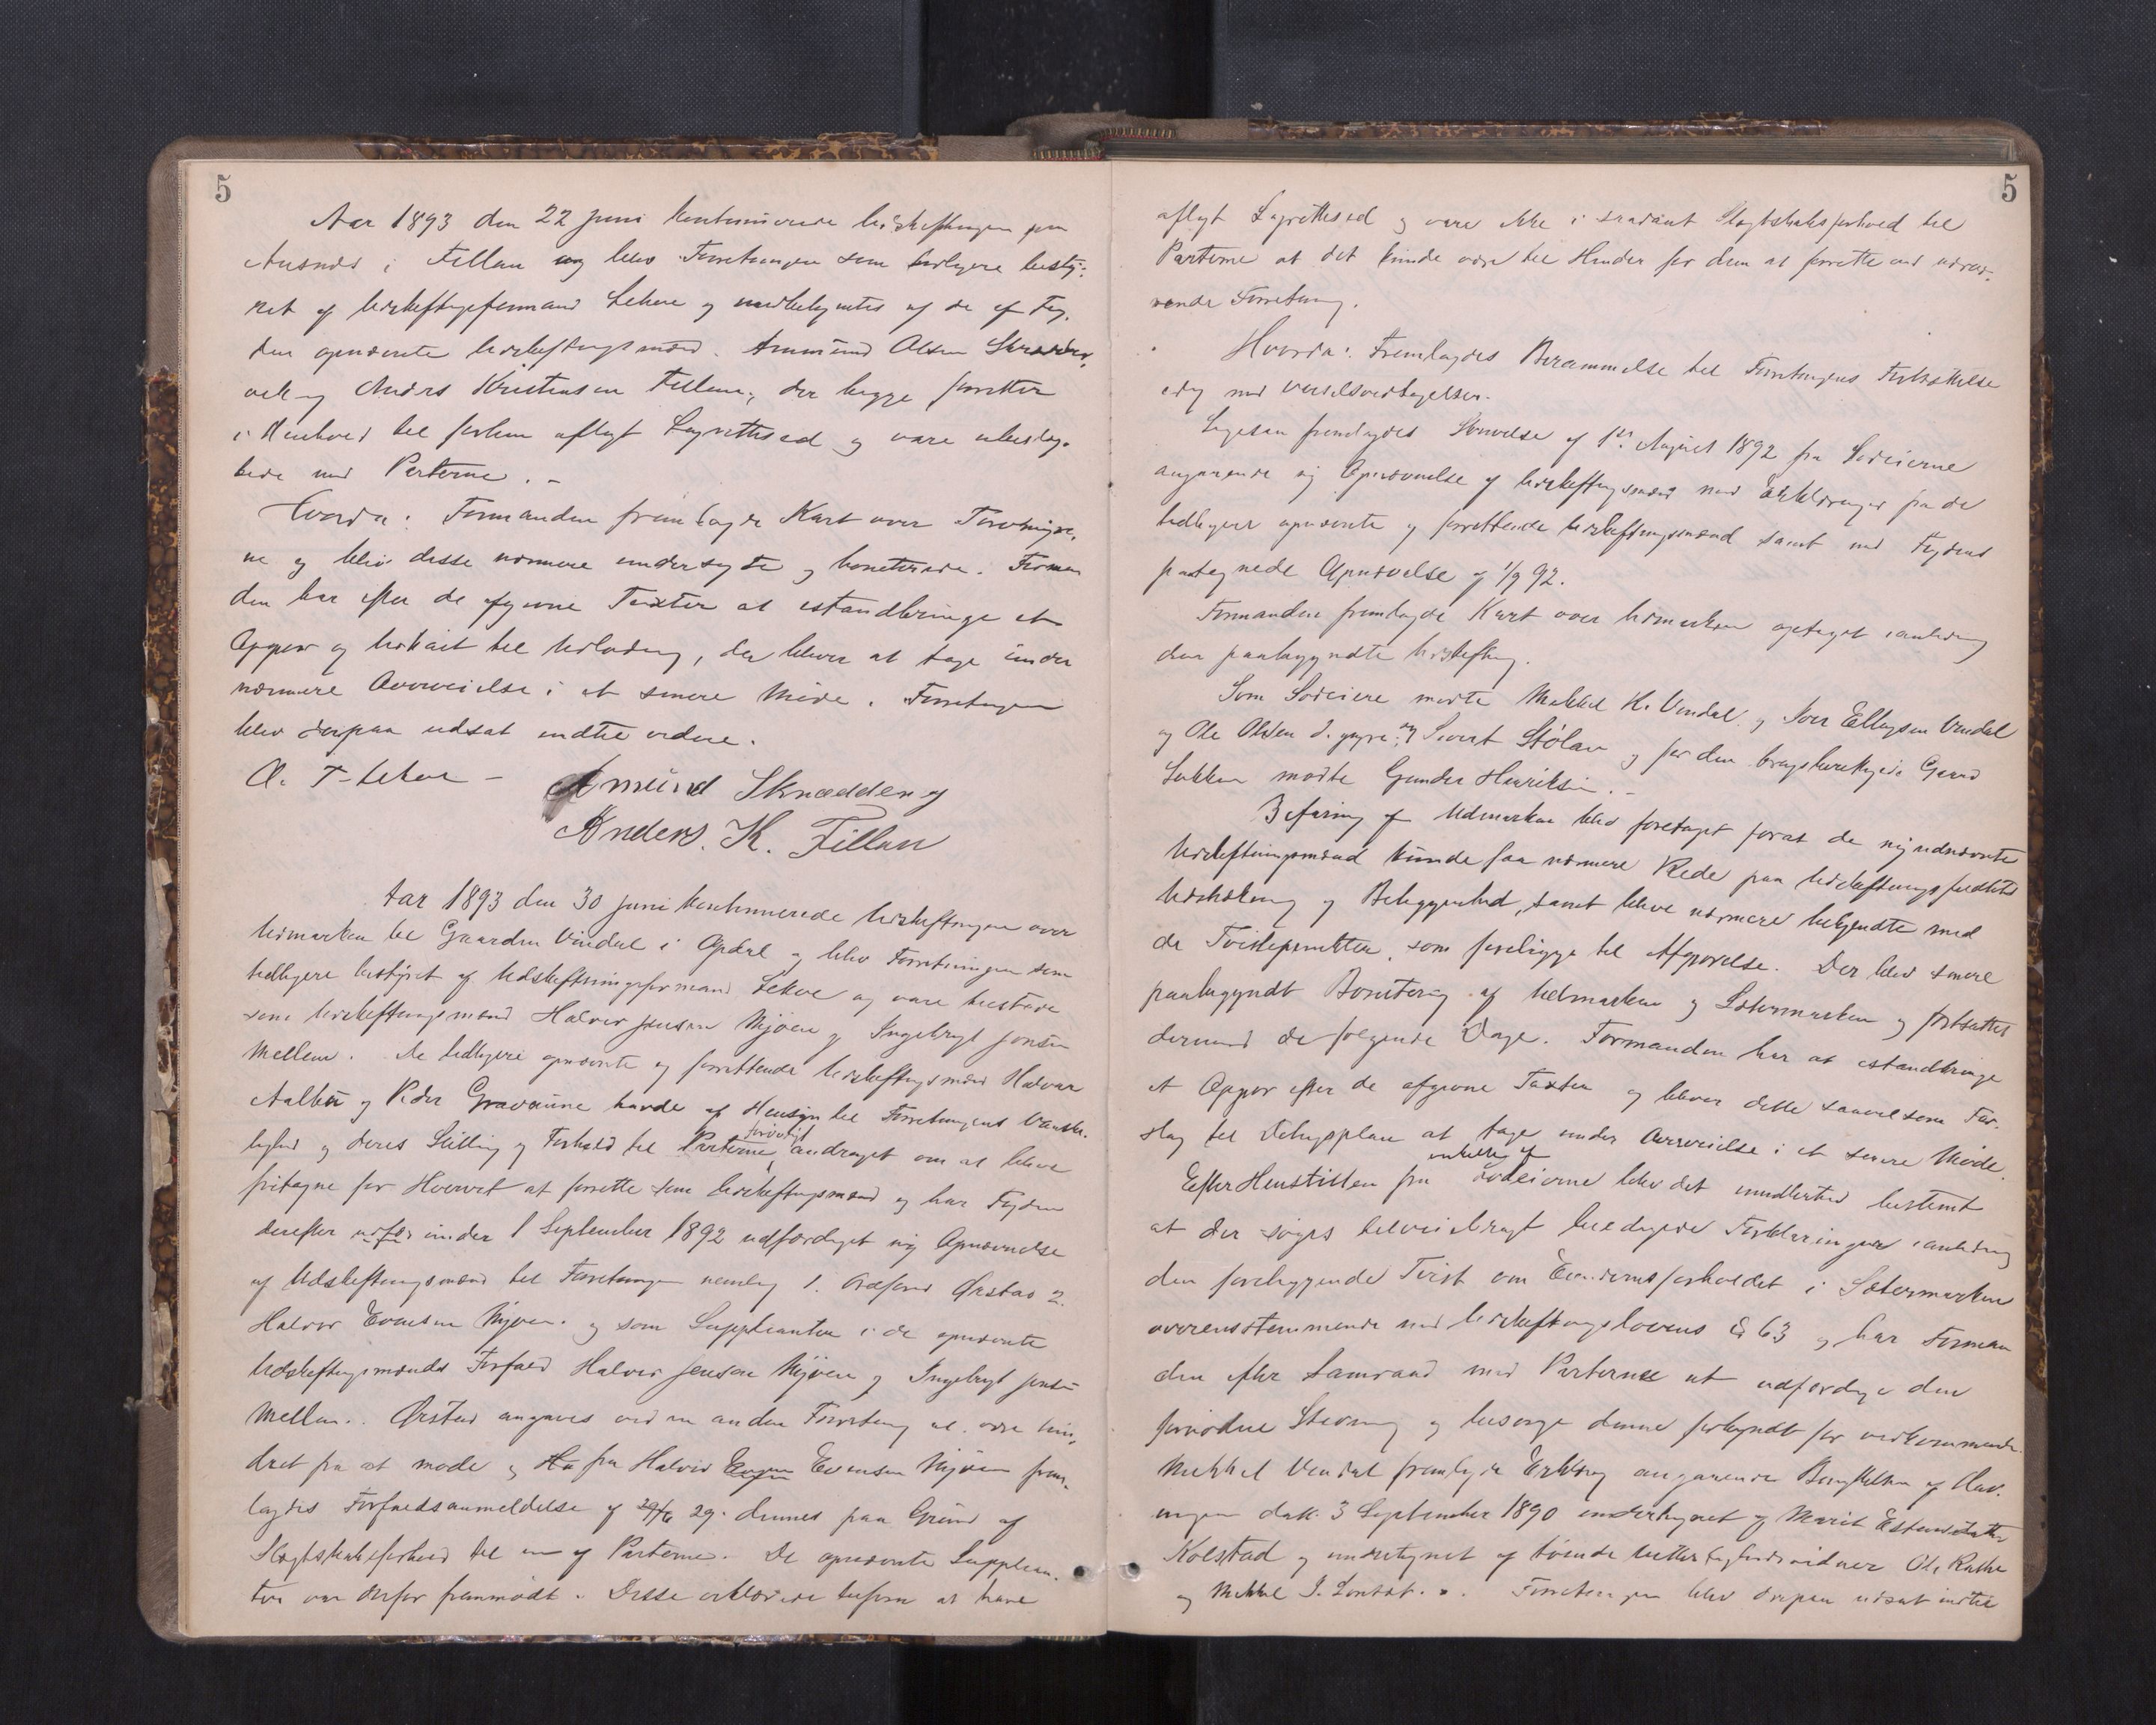 5
Aar 1893 den 22 Juni kontinuerede Udskiftningen paa
Ausnes i Fillan og blev Forretningen som tidligere besty-
ret af Udskiftngsformand Lekve og medbetjentes af de af Fog-
den opnævnte Udskiftningsmænd. Ammund Olsen
og Anders Kristensen Fillan, der begge forretter
i Henhold til forhen aflagt Lagrettesed og vare ubeslæg-
tede med Parterne. -
Hvorda: Formanden fremlagde Kart over
ne og blev disse nærmere undersøgte og boniterede. Forman
den har efter de afgivne Taxter at istandbringe et
Opgjør og Udkast til Udlodning, der bliver at tage under
nærmere Overveielse i et senere Møde. Forretningen
blev derpaa udsat indtil videre.
O. T. Lekve - Amund Skrædder og
Anders. K. Fillan
Aar 1893 den 30 Juni kontinuerede Udskiftningen over
Udmarken til Gaarden Vindal i Opdal og blev Forretningen som
tidligere bestyret af Udskiftningsformand Lekve og vare tilstede
som Udskiftningsmænd Halvor Jensen Mjøen og Ingebrigt Jonsen
Mellem. De tidligere opnævnte og forrettende Udskiftngsmænd Halvor
Aalbu og Peder Gravaune havde af Hensyn til Forretningens Vanske-
lighed og deres Stilling og Forhold til Parterne forøvrigt andraget om at blive
fritagne for Hvervet at forrette som Udskiftngsmænd og har Fogden
derefter under 1 September 1892 udfærdiget ny Opnævnelse
af Udskiftningsmænd til Forretningen nemlig 1. Ørstad 2.
Halvor Evensen Mjøen. og som Suppleanter i de opnævnte
Udskiftngsmænds Forfald Halvor Jensen Mjøen og Ingebrigt Jonsen
Mellem. Ørstad angaves ved en anden Forretning at være hin-
dret fra at møde og fra Halvor Evensen Mjøen frem-
lagdes Forfaldsanmeldelse af 29/6 29. dennes paa Grund af
Slægtskabsforhold til en af Parterne. De opnævnte Supplean-
ter var derfor fremmødt. Disse erklærede tilforn at have
5
aflagt Lagrettesed og vare ikke i saadant Slægtskabsforhold til
Parterne at det kunde være til Hinder for dem at forrette ved nærvæ-
rende Forretning.
Hvorda: Fremlagdes Berammelse til Forretningens Fortsættelse
idag med Varselsvedtagelser.
Ligesaa fremlagdes Skrivelse af 1ste August 1892 fra Lodeierne
angaaende ny Opnævnelse af Udskiftngsmænd med Erklæringer fra de
tidligere opnævnte og forrettende Udskiftningsmænd samt med Fogdens
paategnede Opnævnelse af 1/9 92.
Formanden fremlagde Kart over Udmarken optaget ianledning
den paabegyndte Udskiftng.
Som Lodeiere mødte Mikkel H. Vindal og Iver Ellingsen Vindal
og Ole Olsen og Sivert Stölan og for den brugsberettigede Gaard
Løkken mødte Gunder Henriksen. -
Befaring af Udmarken blev foretaget forat de nyudnævnte
Udskiftningsmænd kunde faa nærmere Rede paa Udskiftningsfeltets
Udstrækning og Beliggenhed, samt blive nærmere bekjendte med
de Tvistepunkter, som foreligge til Afgjørelse. Der blev senere
paabegyndt Bonitering af Udmarken og Sætermarken og fortsattes
dermed de følgende Dage. Formanden har at istandbringe
et Opgjør efter de afgivne Taxter og bliver dette saavelsom For-
slag til Delingsplan at tage under Overveielse i et senere Møde.
Efter Henstillen fra enkelte af Lodeierne blev det imidlertid bestemt
at der søges tilveiebragt beedigede Forklaringer ianledning
den foreliggende Tvist om Eiendomsforholdet i Sætermarken
overensstemmende med Udskiftngslovens § 63 og har Forman
den efter Samraad med Parterne at udfærdige den
fornødne Stævning og besørge denne forkyndt for vedkommende.
Mikkel Vindal fremlagde Erklæring angaaende Benyttelsen af Hav-
ningen dat. 3 September 1890 undertegnet af Marit
Kolstad og undertegnet af tvende Vitterlighedsvidner Ole
og Mikkel Forretningen blev derpaa udsat indtil